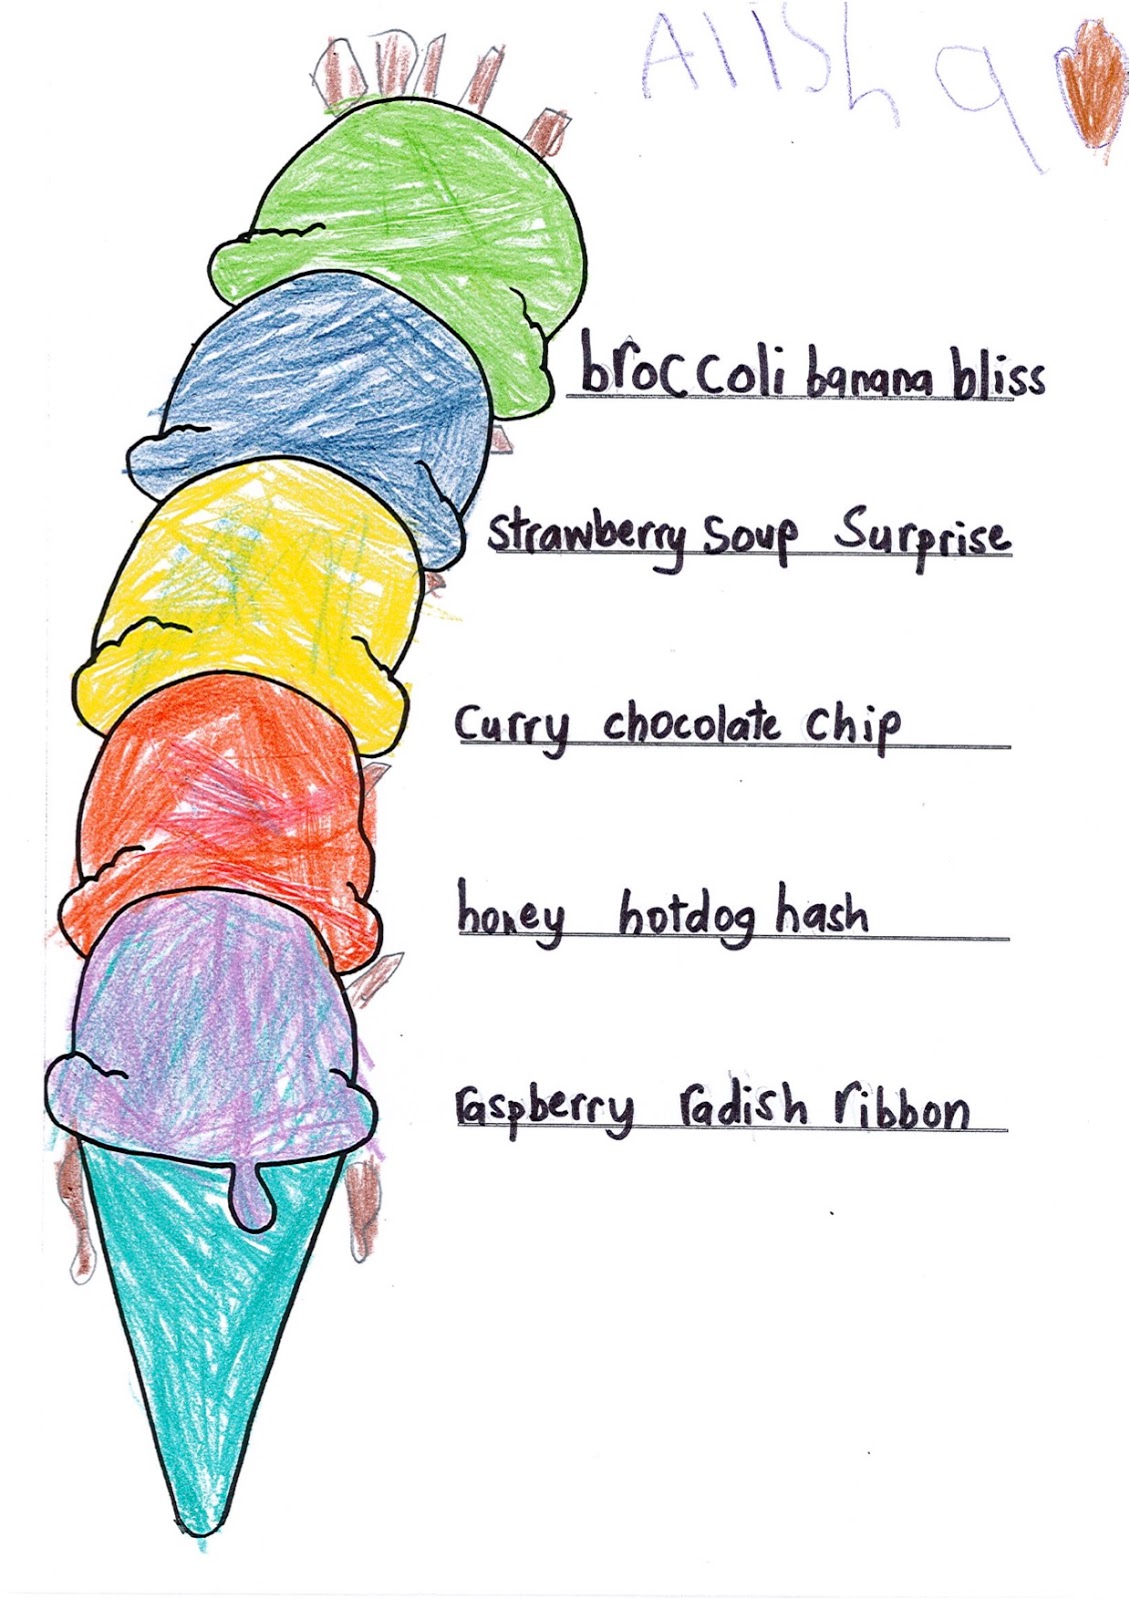 Alisha
broccoli banana bliss
Strawberry Soup Surprise
Curry chocolate chip
honey hotdog hash
raspberry radish ribbon